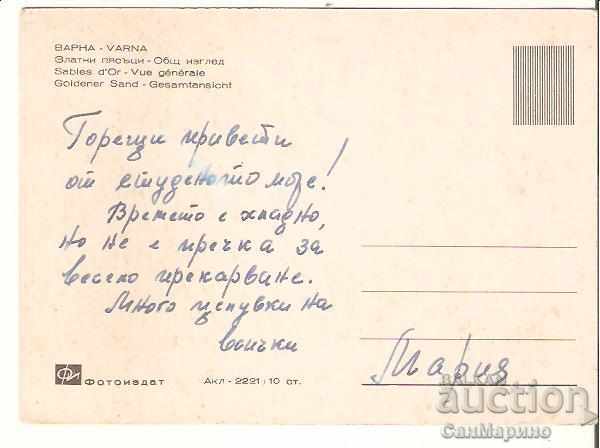 ВАРНА - VARNA
Златни пясъци - Общ изглед
Sables d'Or - Vue générale
Goldener Sand - Gesamtansicht
Горещи привети
от студеното море!
Времето е хладно,
но не е пречка за
весело прекарване.
Много целувки на
всички
Мария
Фотоиздат
Акл - 2221 ; 10 ст.
BALKAN
auction
СанМарино